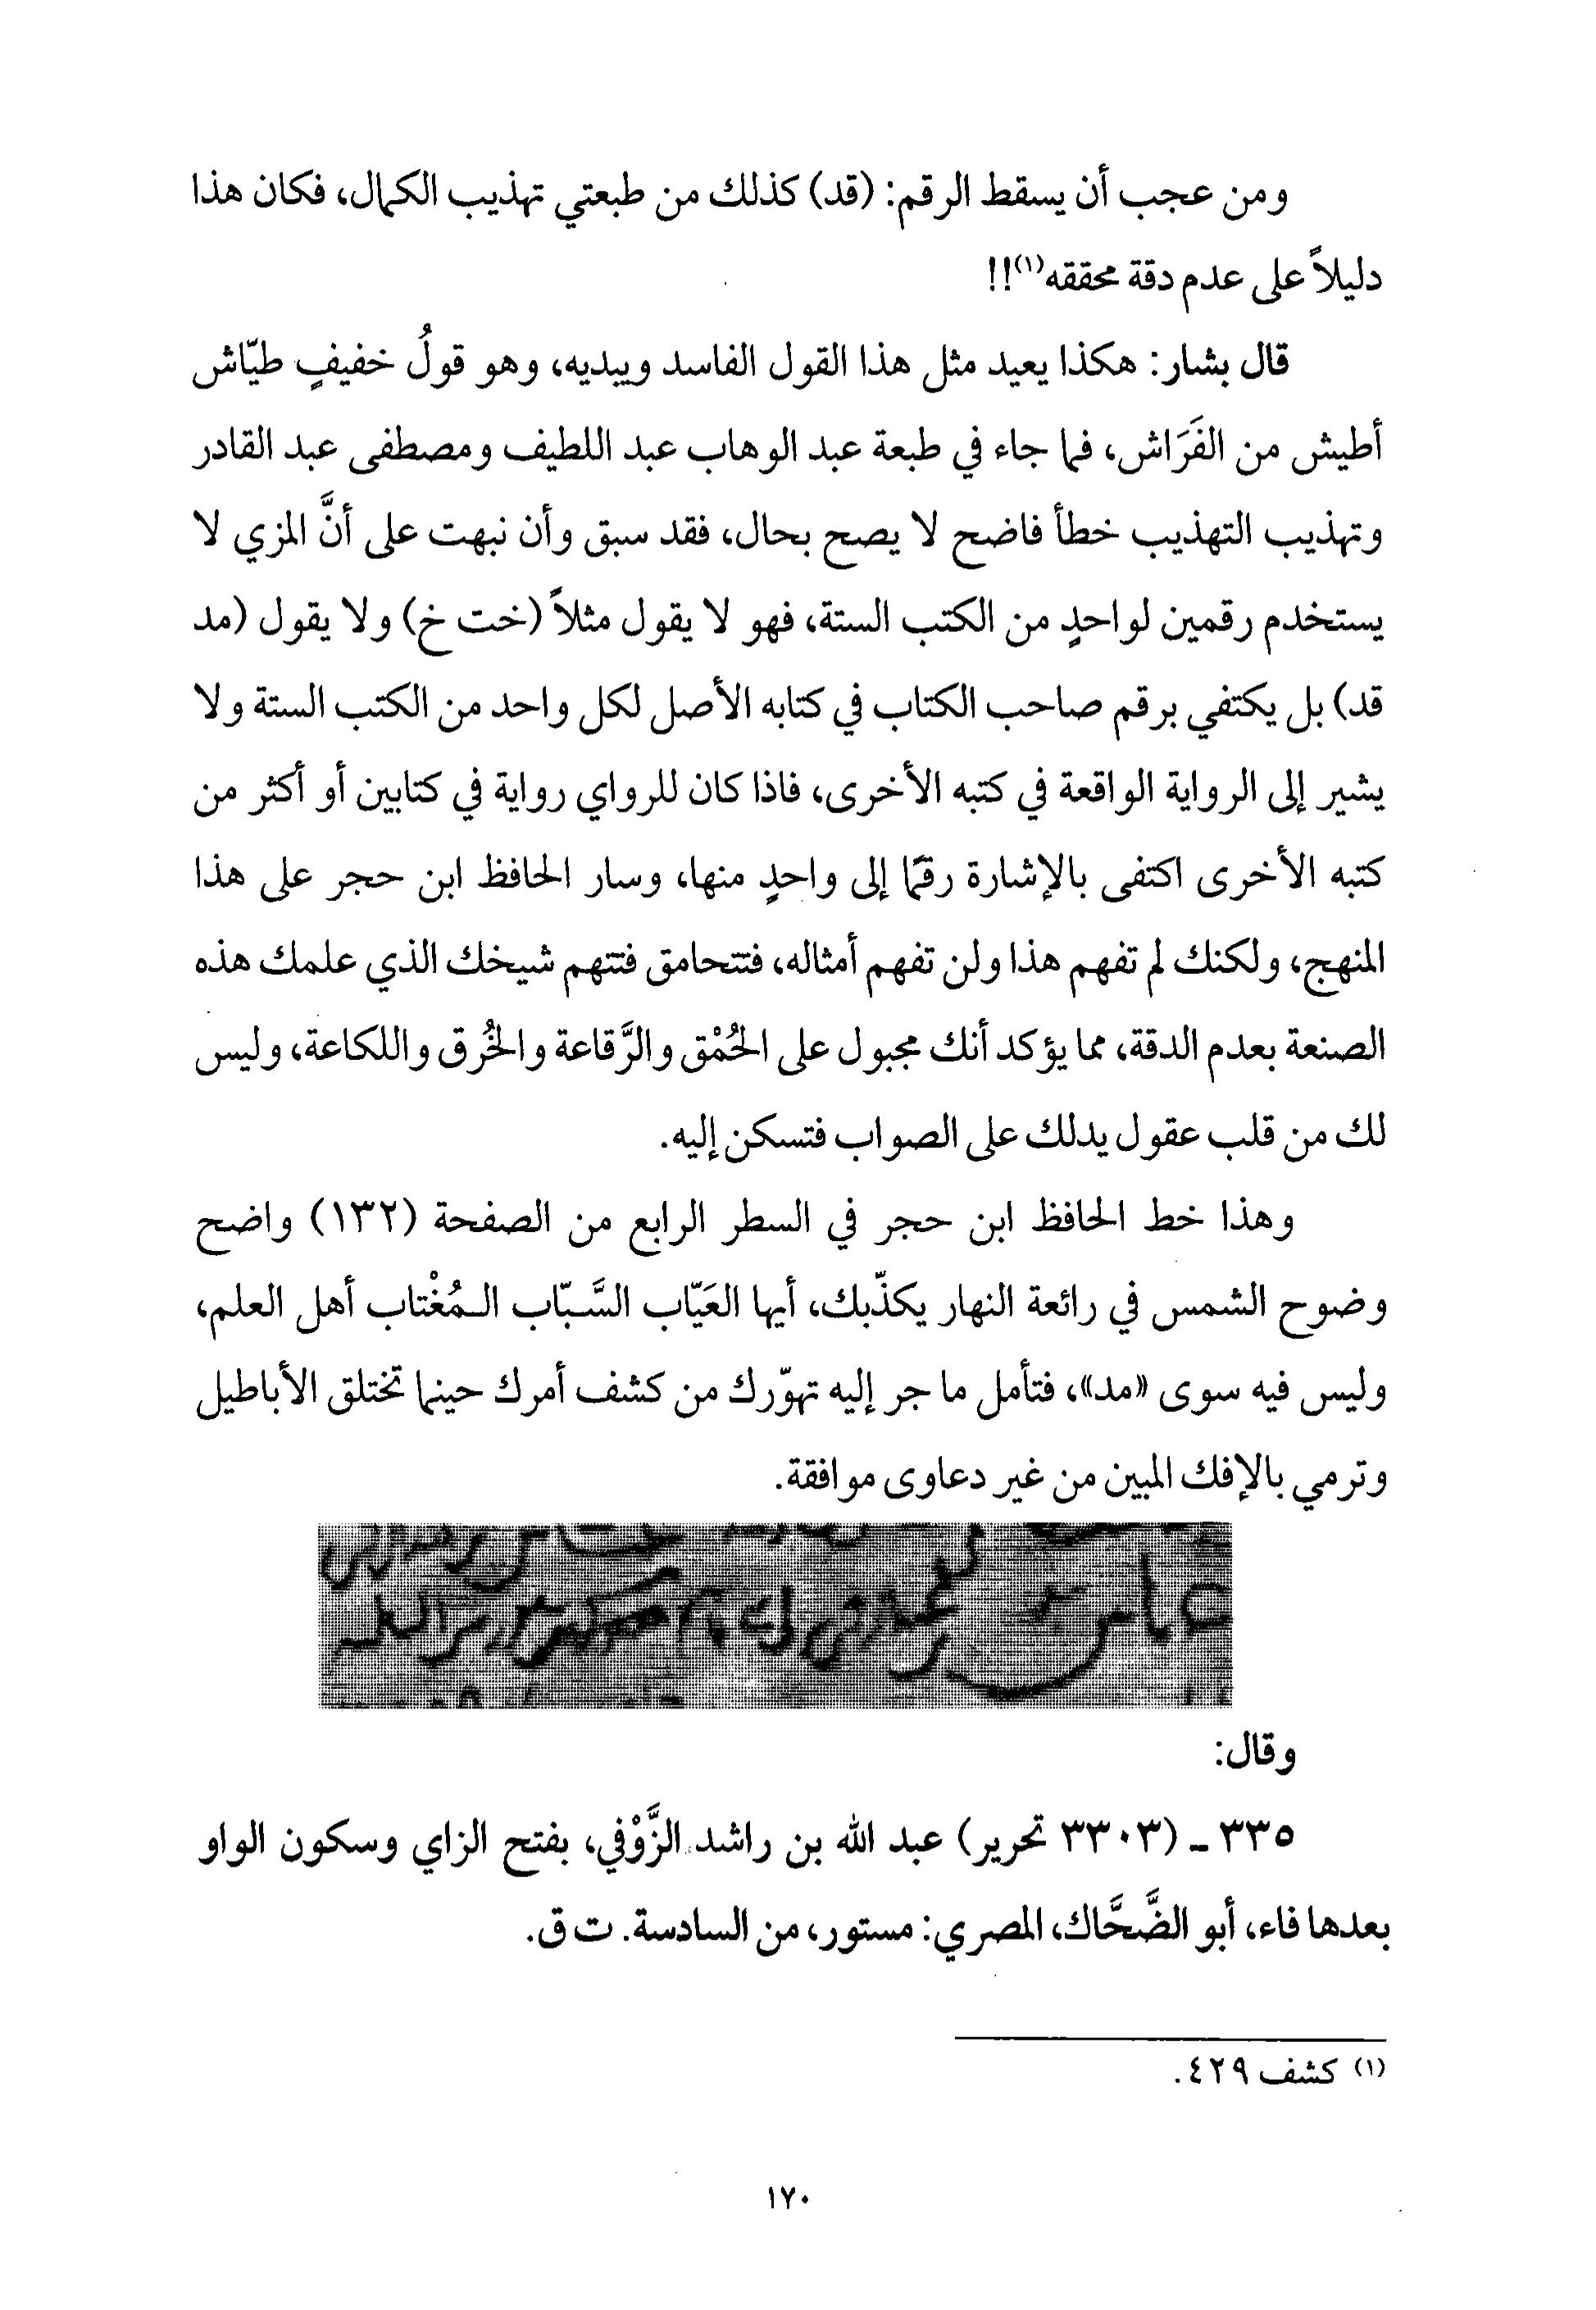 ومن عجب أن يسقط الرقم: (قد) كذلك من طبعتي تهذيب الكمال، فكان هذا
دليلاً على عدم دقة محققه(١)!!
قال بشار: هكذا يعيد مثل هذا القول الفاسد ويبديه، وهو قولُ خفيفٍ طيّاش
أطيش من الفَرَاش، فما جاء في طبعة عبد الوهاب عبد اللطيف ومصطفى عبد القادر
وتهذيب التهذيب خطأ فاضح لا يصح بحال، فقد سبق وأن نبهت على أنَّ المزي لا
يستخدم رقمين لواحدٍ من الكتب الستة، فهو لا يقول مثلاً (خت خ) ولا يقول (مد
قد) بل يكتفي برقم صاحب الكتاب في كتابه الأصل لكل واحد من الكتب الستة ولا
يشير إلى الرواية الواقعة في كتبه الأخرى، فاذا كان للرواي رواية في كتابين أو أكثر من
كتبه الأخرى اكتفى بالإشارة رقمًا إلى واحدٍ منها، وسار الحافظ ابن حجر على هذا
المنهج، ولكنك لم تفهم هذا ولن تفهم أمثاله، فتتحامق فتتهم شيخك الذي علمك هذه
الصنعة بعدم الدقة، مما يؤكد أنك مجبول على الحُمْق والرَّقاعة والخُرق واللكاعة، وليس
لك من قلب عقول يدلك على الصواب فتسكن إليه.
وهذا خط الحافظ ابن حجر في السطر الرابع من الصفحة (١٣٢) واضح
وضوح الشمس في رائعة النهار يكذّبك، أيها العَيّاب السَّبّاب الـمُغْتاب أهل العلم،
وليس فيه سوى «مد»، فتأمل ما جر إليه تهوّرك من كشف أمرك حينما تختلق الأباطيل
وترمي بالإفك المبين من غير دعاوى موافقة.
وقال:
٣٣٥ ـ (٣٣٠٣ تحرير) عبد الله بن راشد الزَّوْفي، بفتح الزاي وسكون الواو
بعدها فاء، أبو الضَّحَّاك، المصري: مستور، من السادسة. ت ق.
(١) كشف ٤٢٩.
١٧٠